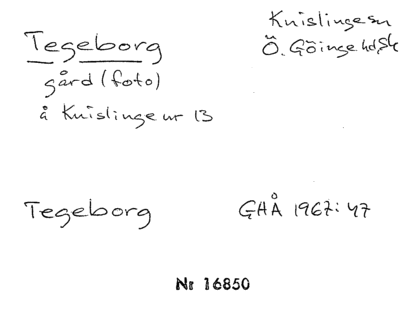 Tegeborg
gård (foto)
å Knislinge nr 13
Knislinge sn
Ö. Göinge hd, Sk
Tegeborg
GHÅ 1967: 47
Nr 16850